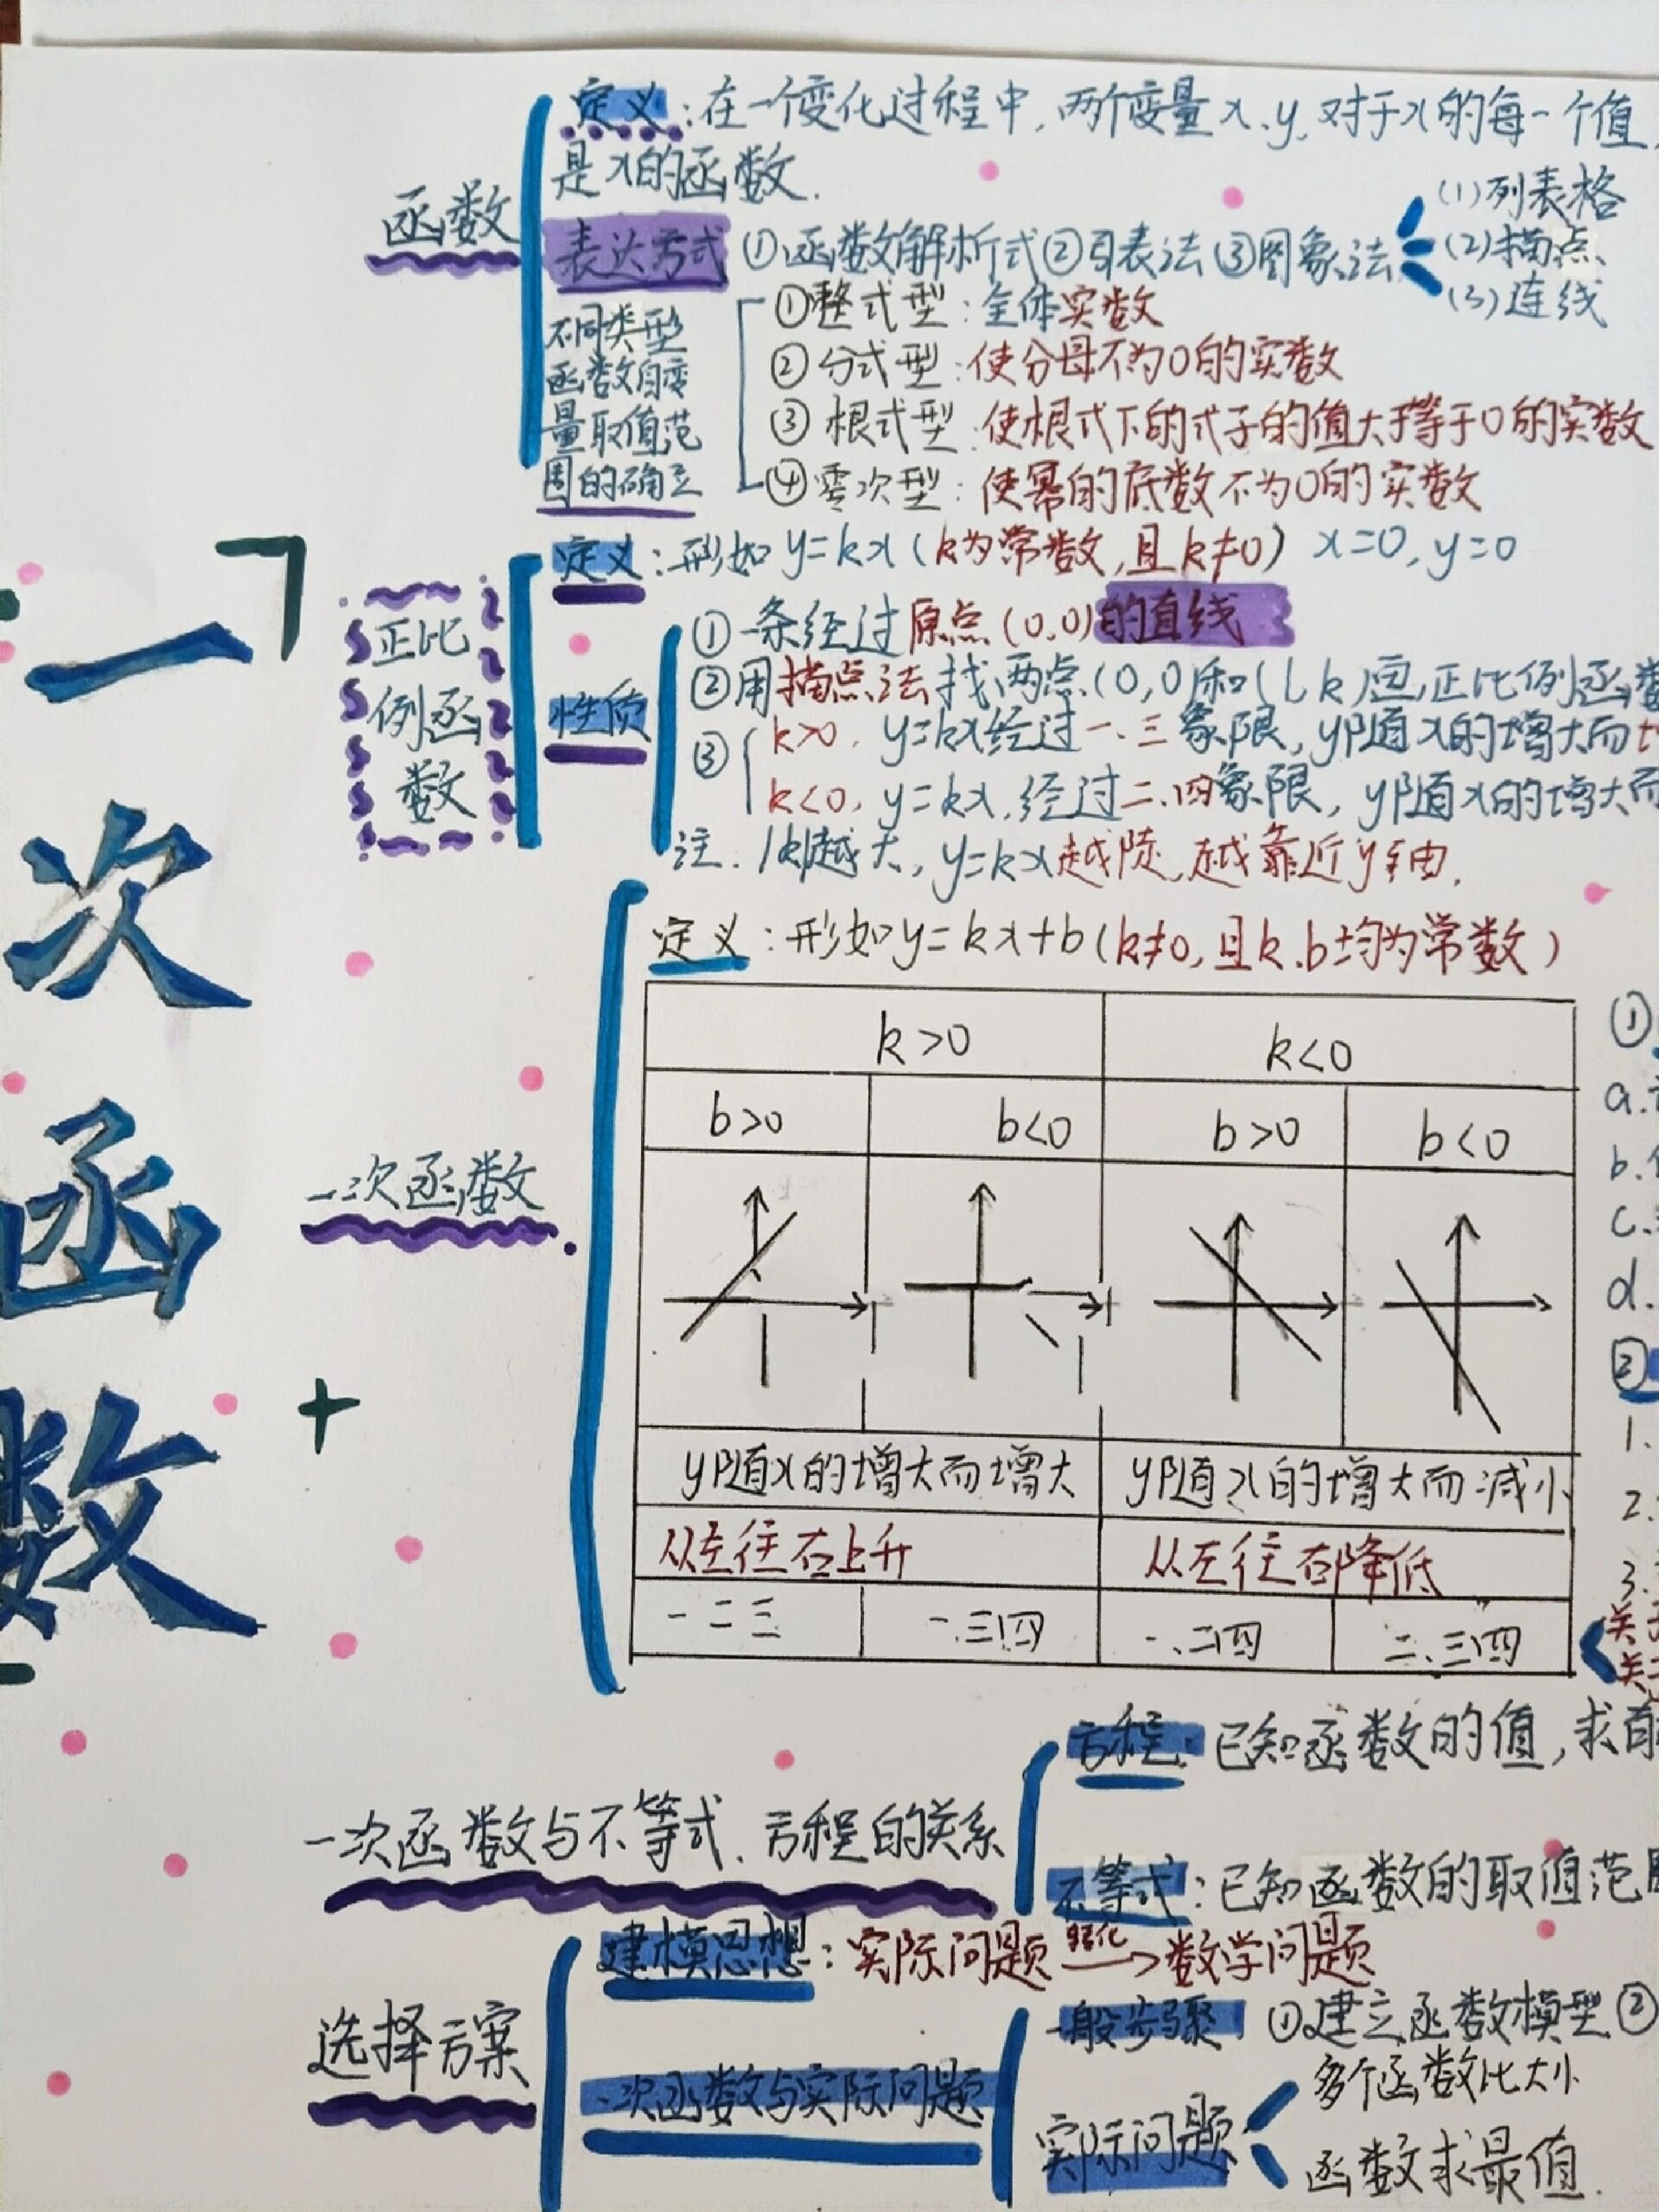 一次函数
函数
定义：在一个变化过程中，两个变量x、y，对于x的每一个值，
是x的函数．
表达方式 ①函数解析式②列表法③图象法
(1)列表格
(2)描点
(3)连线
不同类型
函数自变
量取值范
围的确立
①整式型：全体实数
②分式型：使分母不为0的实数
③根式型：使根式下的式子的值大于等于0的实数
④零次型：使幂的底数不为0的实数
正比
例函
数
定义：形如y=kx（k为常数，且k≠0） x=0，y=0
性质
①一条经过原点(0,0)的直线
②用描点法找两点(0,0)和(1,k)画正比例函数
③ k>0，y=kx经过一、三象限，y随x的增大而增
k<0，y=kx，经过二、四象限，y随x的增大而
注．|k|越大，y=kx越陡，越靠近y轴．
一次函数
定义：形如y=kx+b（k≠0，且k、b均为常数）
k>0 k<0
b>0 b<0 b>0 b<0
y随x的增大而增大 y随x的增大而减小
从左往右上升 从左往右降低
一二三 一、三四 一、二四 二、三四
①
a.
b.
c.
d.
②
1.
2.
3.
关于
关
一次函数与不等式、方程的关系
方程：已知函数的值，求自
不等式：已知函数的取值范围
选择方案
建模思想：实际问题→数学问题
一次函数与实际问题
一般步骤 ①建立函数模型②
实际问题
多个函数比大小
函数求最值．